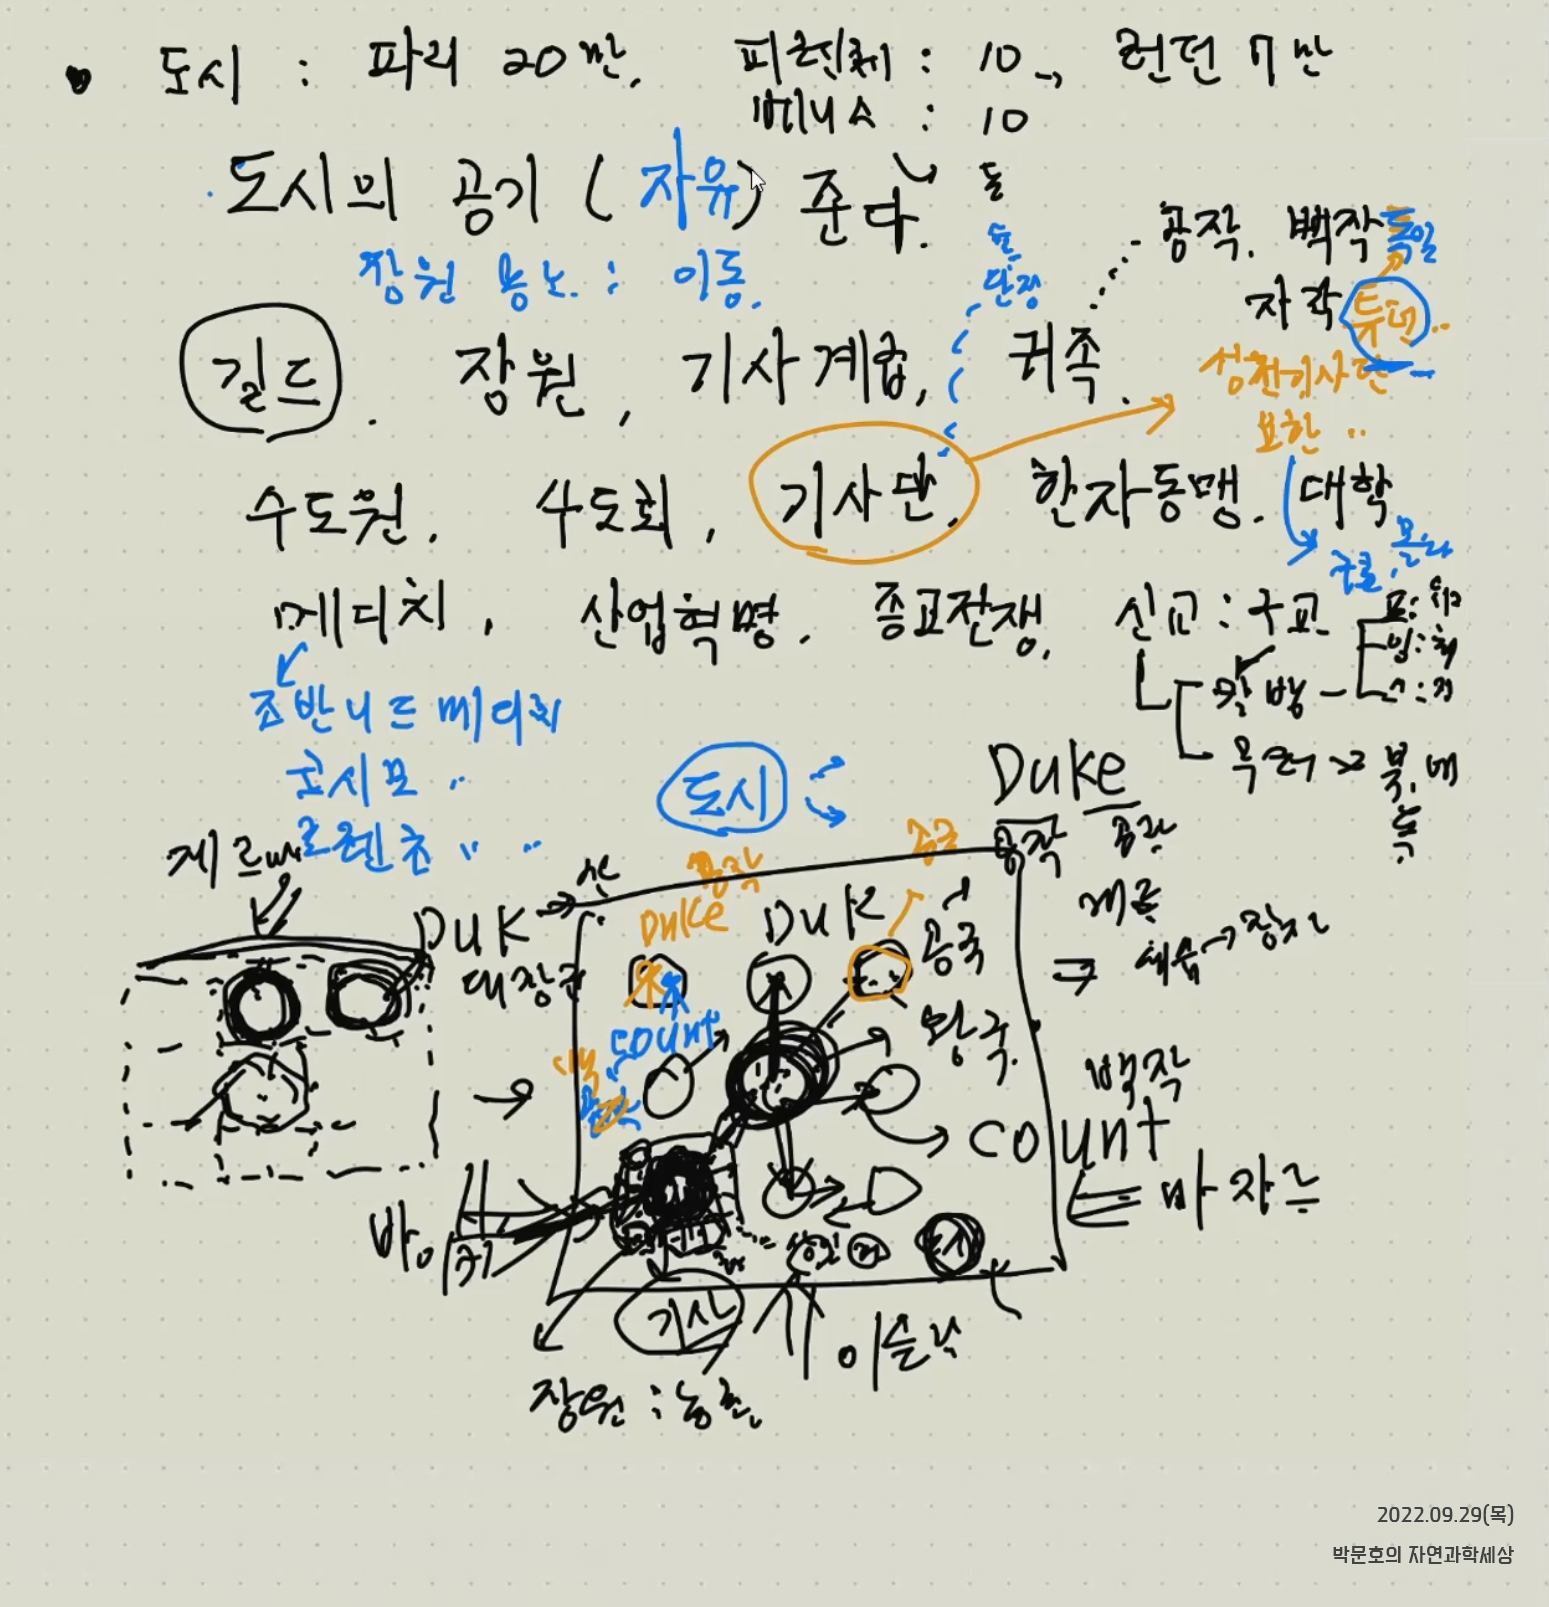 도시 : 파리 20만, 피렌체 : 10, 런던 7만
베니스 : 10
도시의 공기 (자유) 준다.
돌
장원 농노 : 이동.
공작. 백작 독일
자작 튜턴..
길드. 장원, 기사계급, 귀족.
성전기사단
요한 ..
수도원, 수도회, 기사단, 한자동맹. 대학
몰타
메디치, 산업혁명. 종교전쟁, 신교 : 구교
조반니 드 메디치
코시모 ..
로렌초 .. ..
도시
Duke
공작
게르만
DUK
대장군
산
공작
DUKE
DUK
공국
왕국.
세습 → 장자
count
백작
count
마자르
바이킹
기사
도시
이슬람
장원 : 농촌
2022.09.29(목)
박문호의 자연과학세상